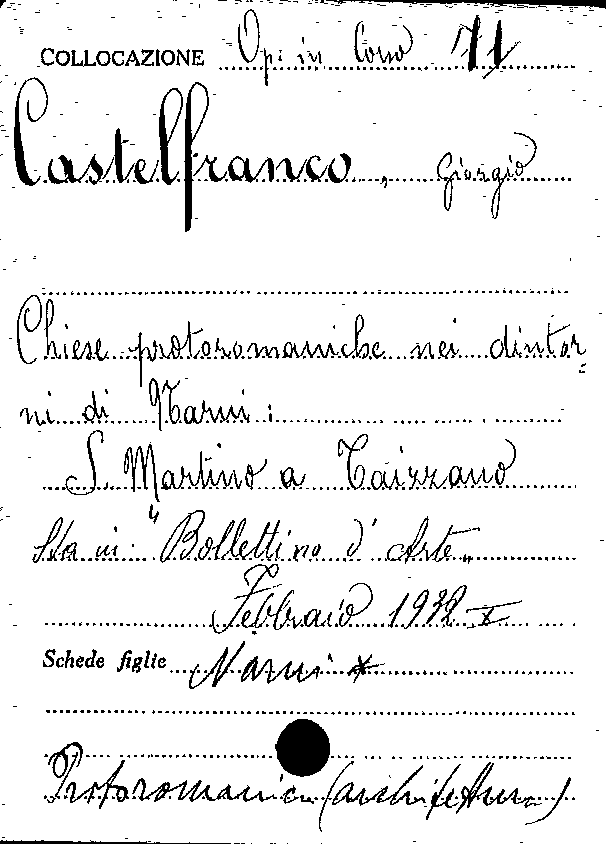 COLLOCAZIONE Op. in Corso 71
Castelfranco, Giorgio
Chiese protoromaniche nei dintor-
ni di Narni:
S. Martino a Taizzano
Sta in: "Bollettino d'Arte„
Febbraio 1932 - X
Schede figlie Narni *
Protoromanica (architettura)